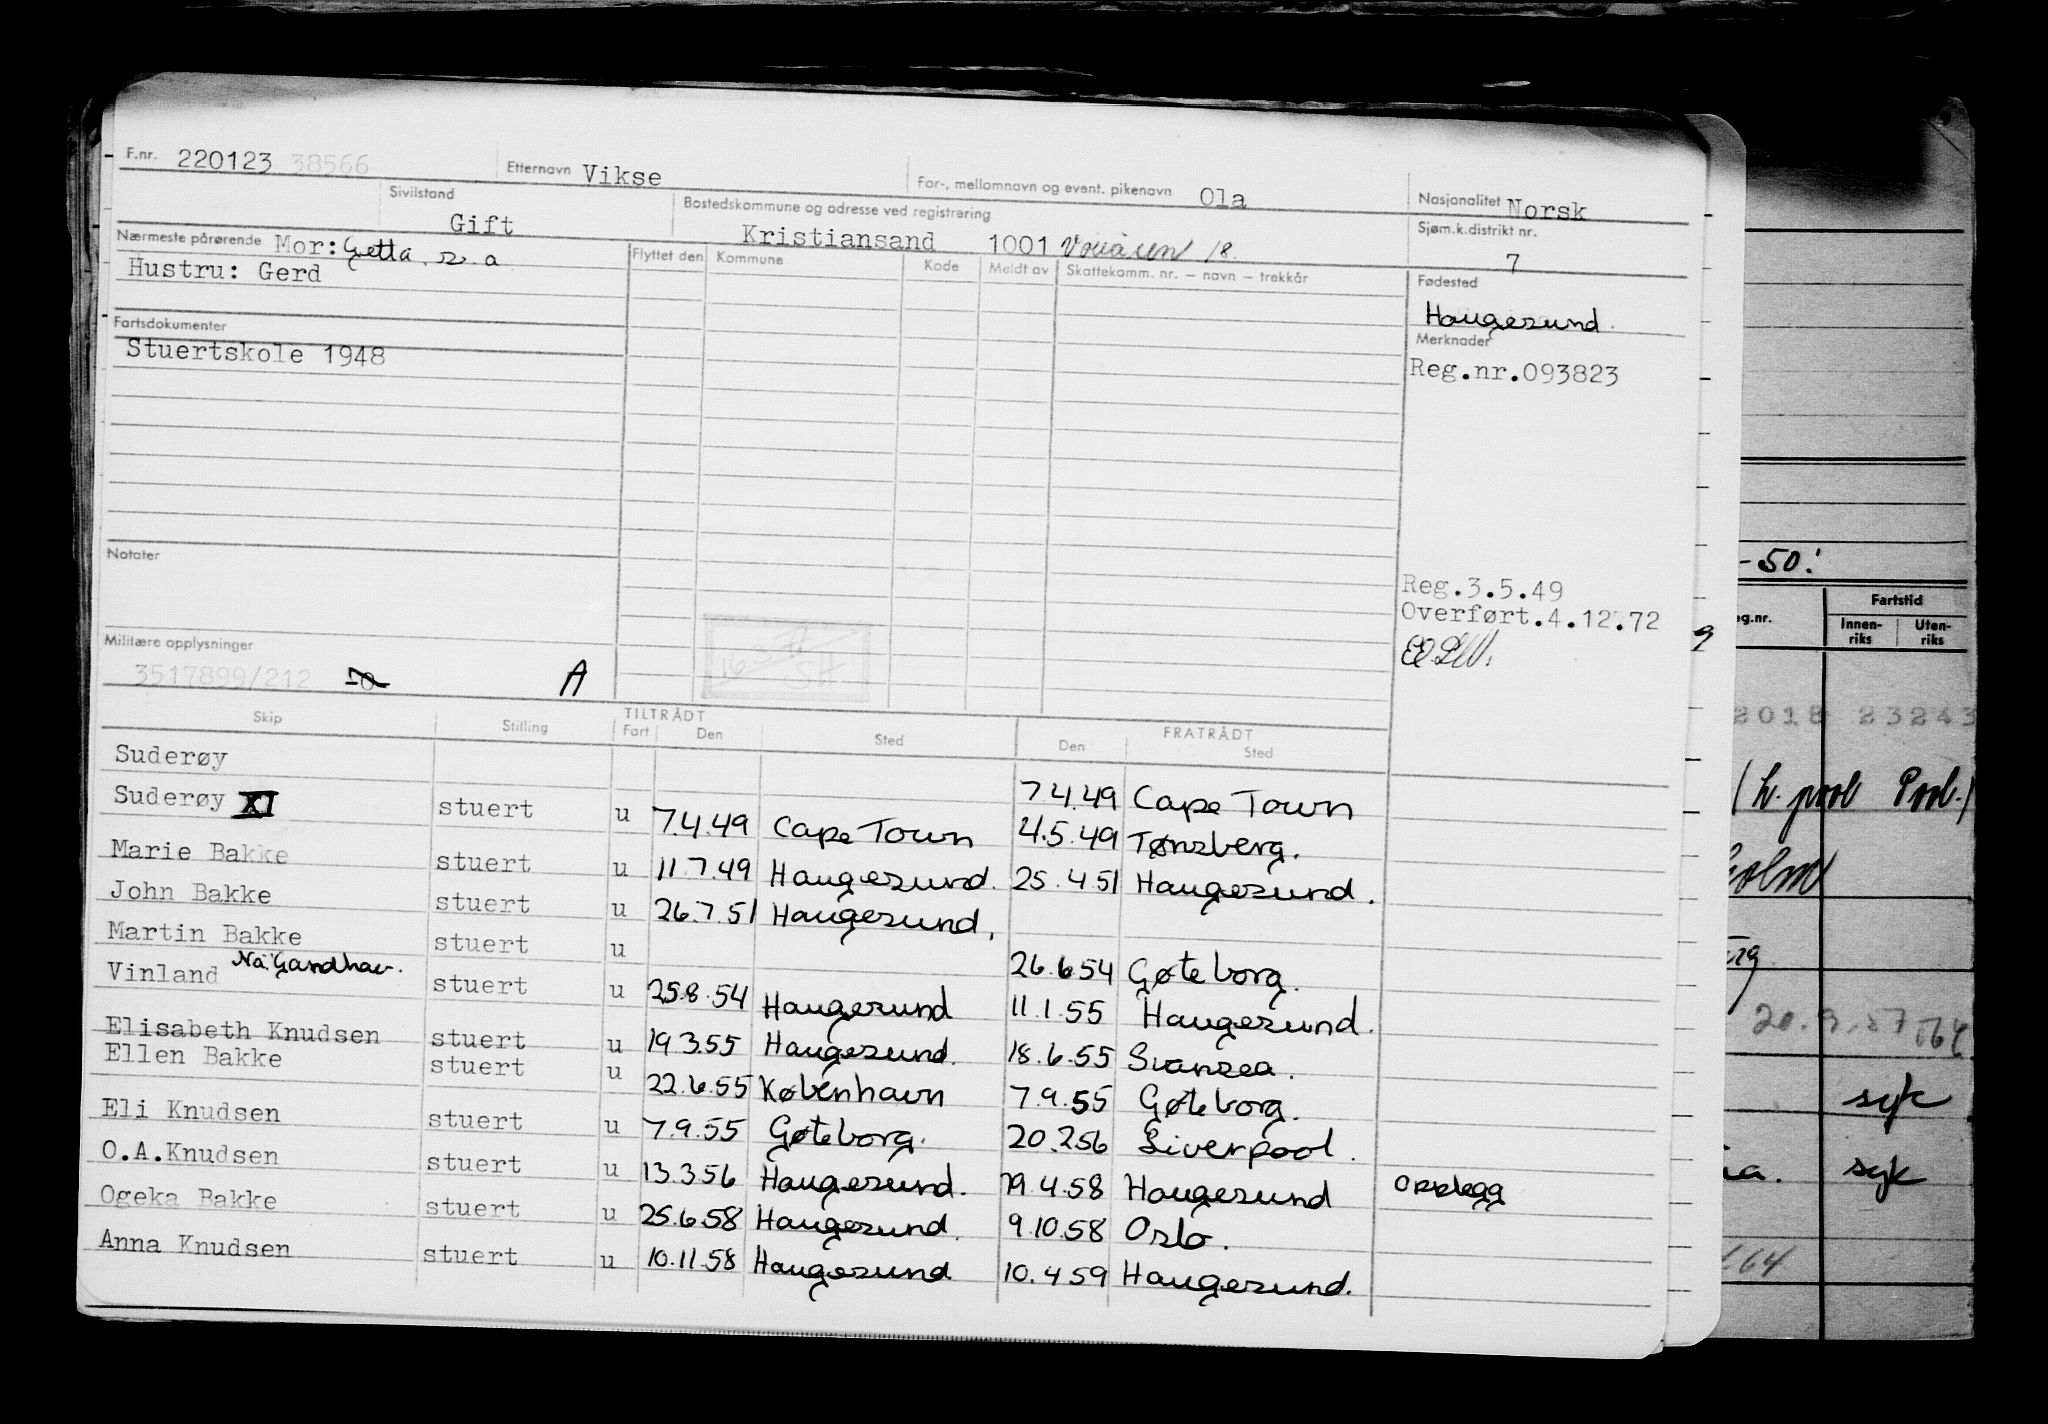 F.nr. 220123 38566 Etternavn Vikse For-, mellomnavn og event. pikenavn Ola Nasjonalitet Norsk
Sivilstand Gift Bostedskommune og adresse ved registrering Kristiansand 1001 18. Sjøm.k.distrikt nr. 7
Nærmeste pårørende Mor: Getta, s. a Flyttet den Kommune Kode Meldt av Skattekomm. nr. – navn – trekkår
Hustru: Gerd
Fødested
Haugesund.
Fartsdokumenter
Stuertskole 1948
Merknader
Reg.nr.093823
Notater
Reg.3.5.49
Overført.4.12.72
Militære opplysninger
3517899/212 A
Skip Stilling TILTRÅDT Fart Den Sted FRATRÅDT Den Sted
Suderøy 7.4.49 Cape Town
Suderøy XI stuert u 7.4.49 Cape Town 4.5.49 Tønsberg.
Marie Bakke stuert u 11.7.49 Haugesund. 25.4.51 Haugesund.
John Bakke stuert u 26.7.51 Haugesund.
Martin Bakke stuert u 26.6.54 Gøteborg.
Vinland Nå: Gandhav. stuert u 25.8.54 Haugesund 11.1.55 Haugesund.
Elisabeth Knudsen stuert u 19.3.55 Haugesund. 18.6.55 Svansea.
Ellen Bakke stuert u 22.6.55 København 7.9.55 Gøteborg.
Eli Knudsen stuert u 7.9.55 Gøteborg. 20.2.56 Liverpool.
O.A.Knudsen stuert u 13.3.56 Haugesund. 29.4.58 Haugesund opplegg
Ogeka Bakke stuert u 25.6.58 Haugesund. 9.10.58 Oslo.
Anna Knudsen stuert u 10.11.58 Haugesund 10.4.59 Haugesund.
-50!
eg.nr. Fartstid
Innen-riks Uten-riks
9
2018 23243
(h. pool Pool.)
holm
rg
20.9.57
syk
ia. syk
64